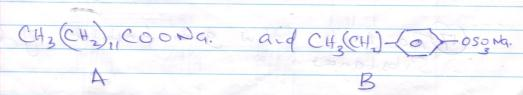 CH₃(CH₂)₁₁COONa. and CH₃(CH₂)-OSO₃Na.
A B